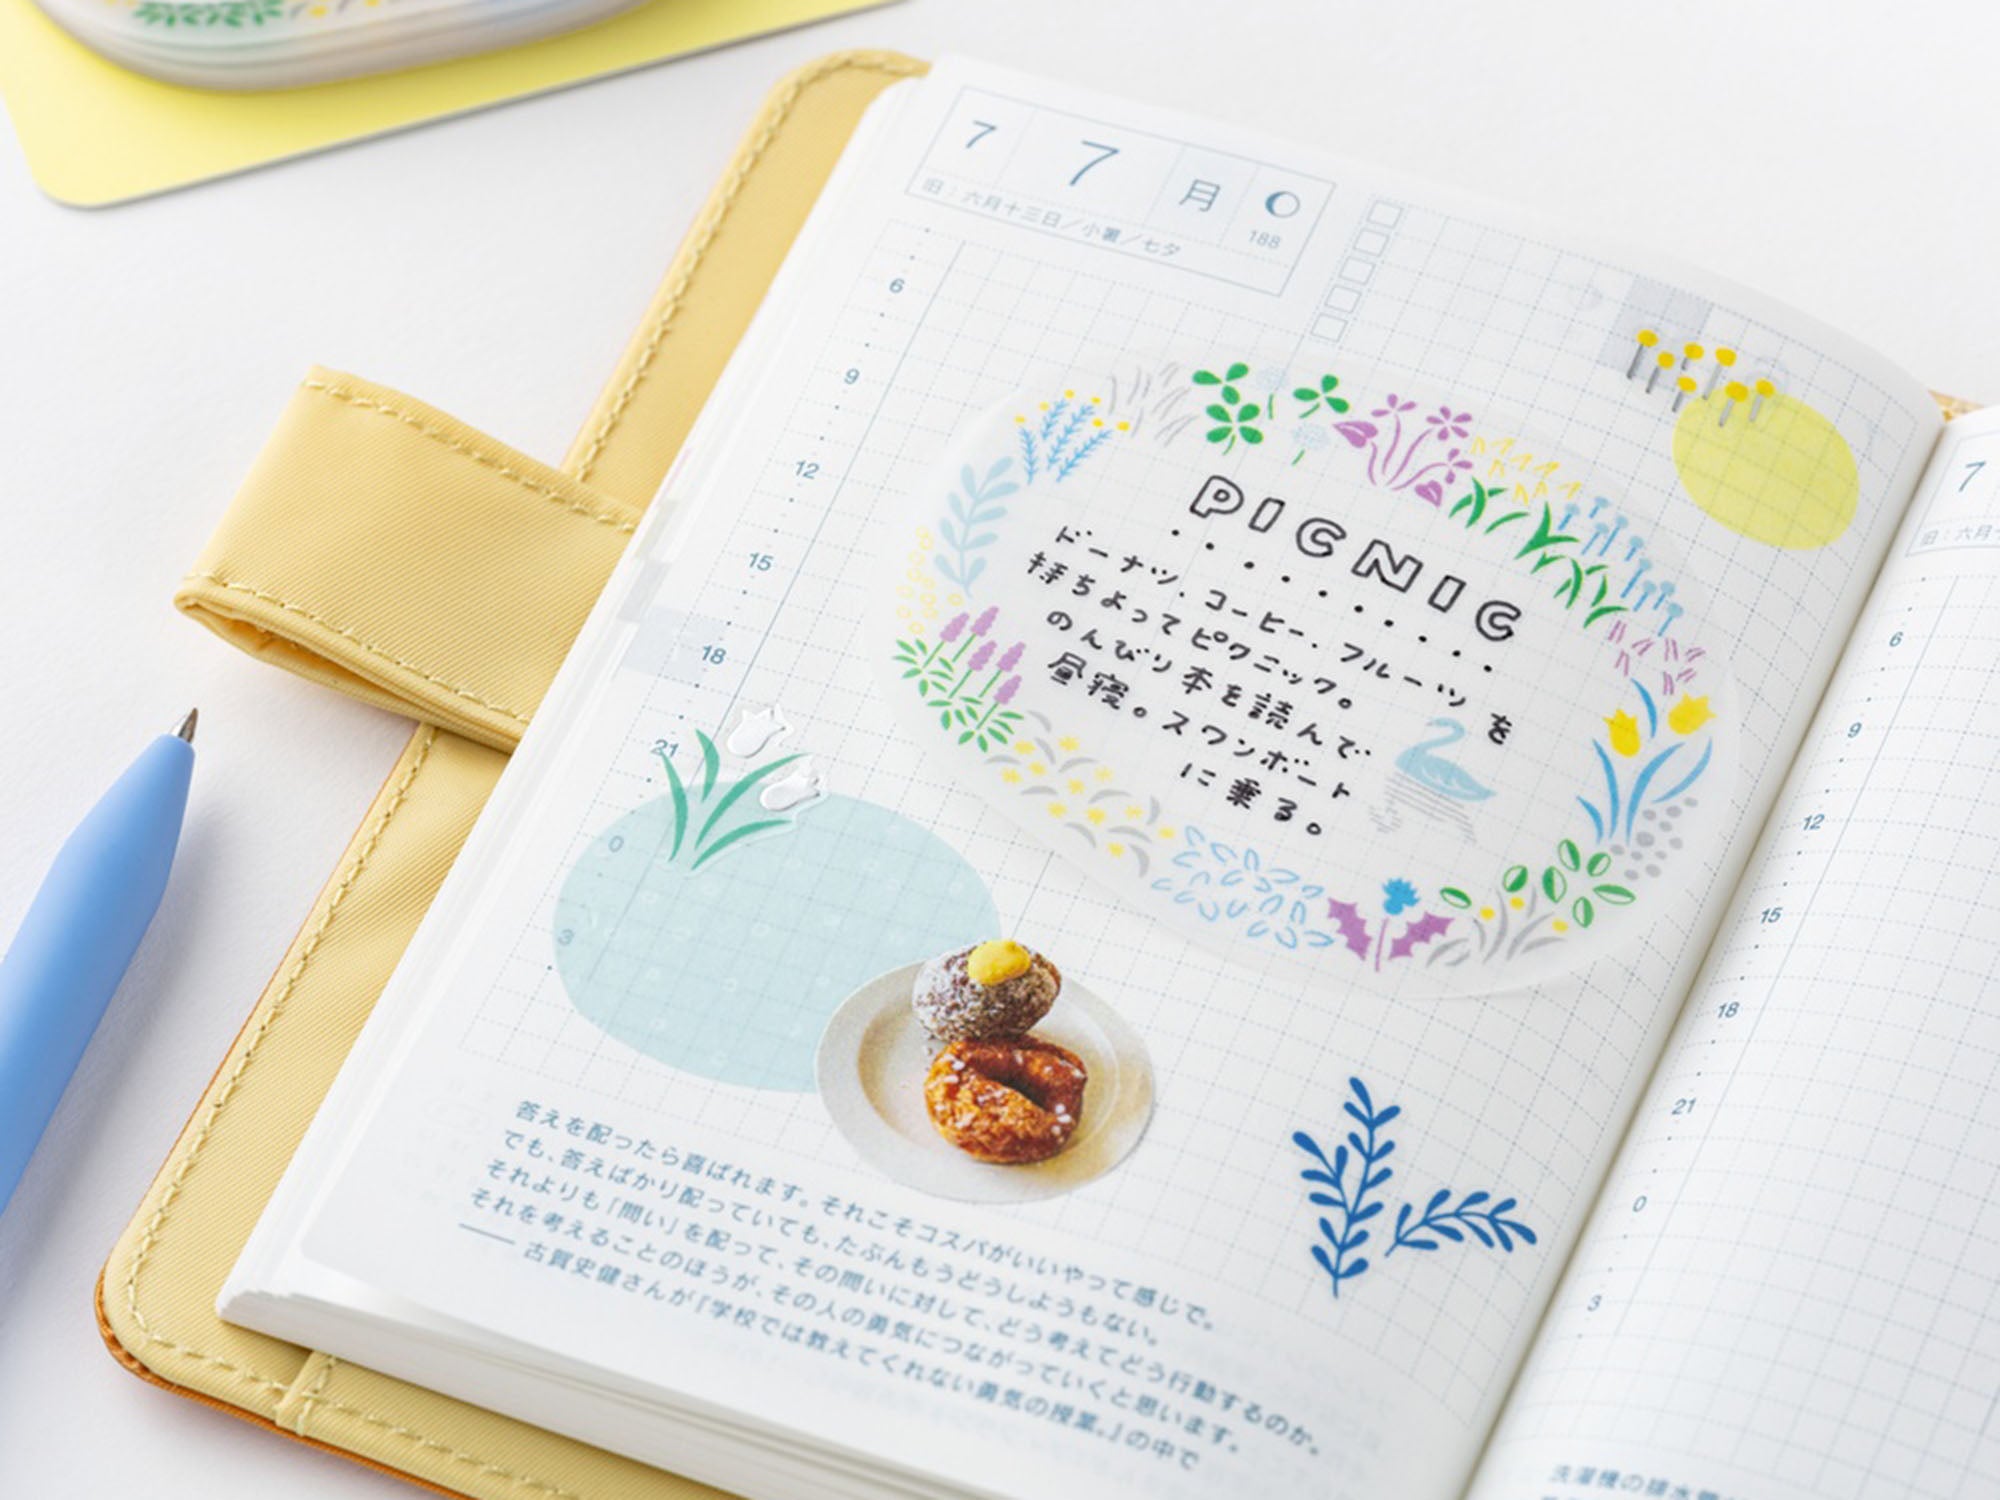 7 7 月
188
旧：六月十三日／小暑／七夕
6
9
12
15
18
21
0
3
PICNIC
ドーナツ、コーヒー、フルーツを
持ちよってピクニック。
のんびり本を読んで
昼寝。スワンボート
に乗る。
答えを配ったら喜ばれます。それこそコスパがいいやって感じで。
でも、答えばかり配っていても、たぶんもうどうしようもない。
それよりも「問い」を配って、その問いに対して、どう考えてどう行動するのか。
それを考えることのほうが、その人の勇気につながっていくと思います。
―― 古賀史健さんが『学校では教えてくれない勇気の授業。』の中で
7
旧：六月
6
9
12
15
18
21
0
3
洗濯機の排水